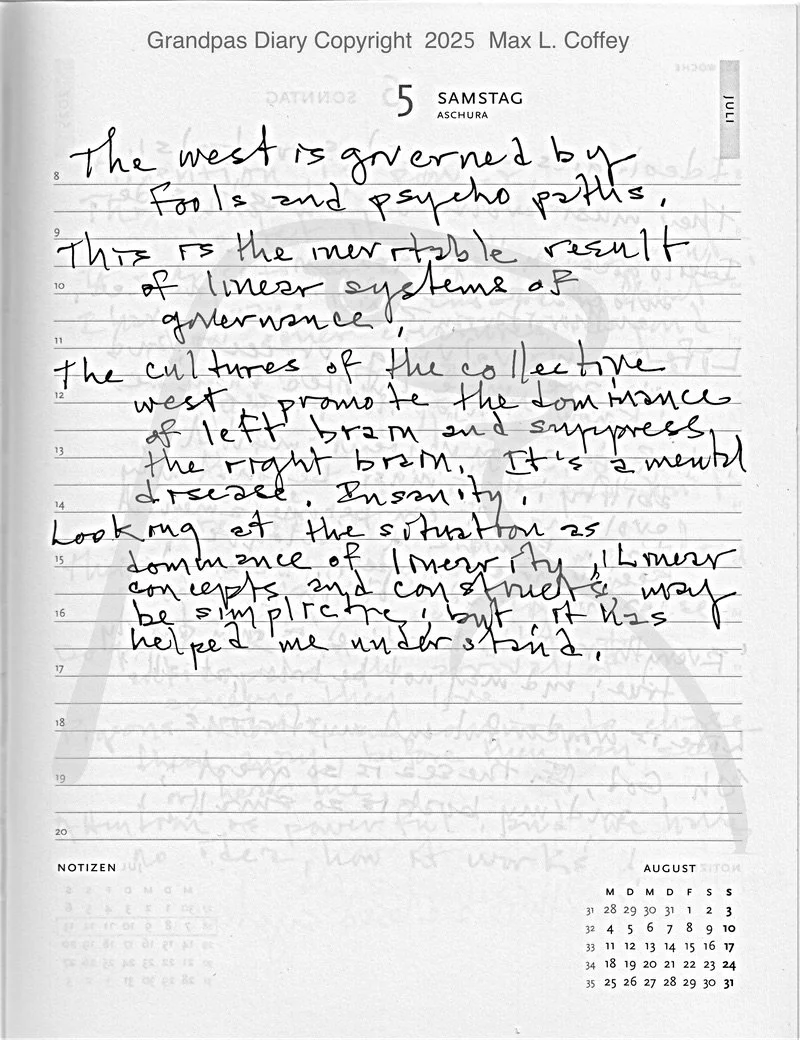 Grandpas Diary Copyright 2025 Max L. Coffey
5 SAMSTAG
ASCHURA
JULI
The west is governed by
8
Fools and psycho paths.
9
This is the inevitable result
10
of linear systems of
governance.
11
The cultures of the collective
12
west, promote the dominance
of left brain and suppress,
13
the right brain. It's a mental
disease. Insanity.
14
Looking at the situation as
15
dominance of linearity, Linear
concepts and constructs, may
16
be simplistic, but, it has
helped me understand.
17
18
19
20
NOTIZEN
AUGUST
M D M D F S S
31 28 29 30 31 1 2 3
32 4 5 6 7 8 9 10
33 11 12 13 14 15 16 17
34 18 19 20 21 22 23 24
35 25 26 27 28 29 30 31